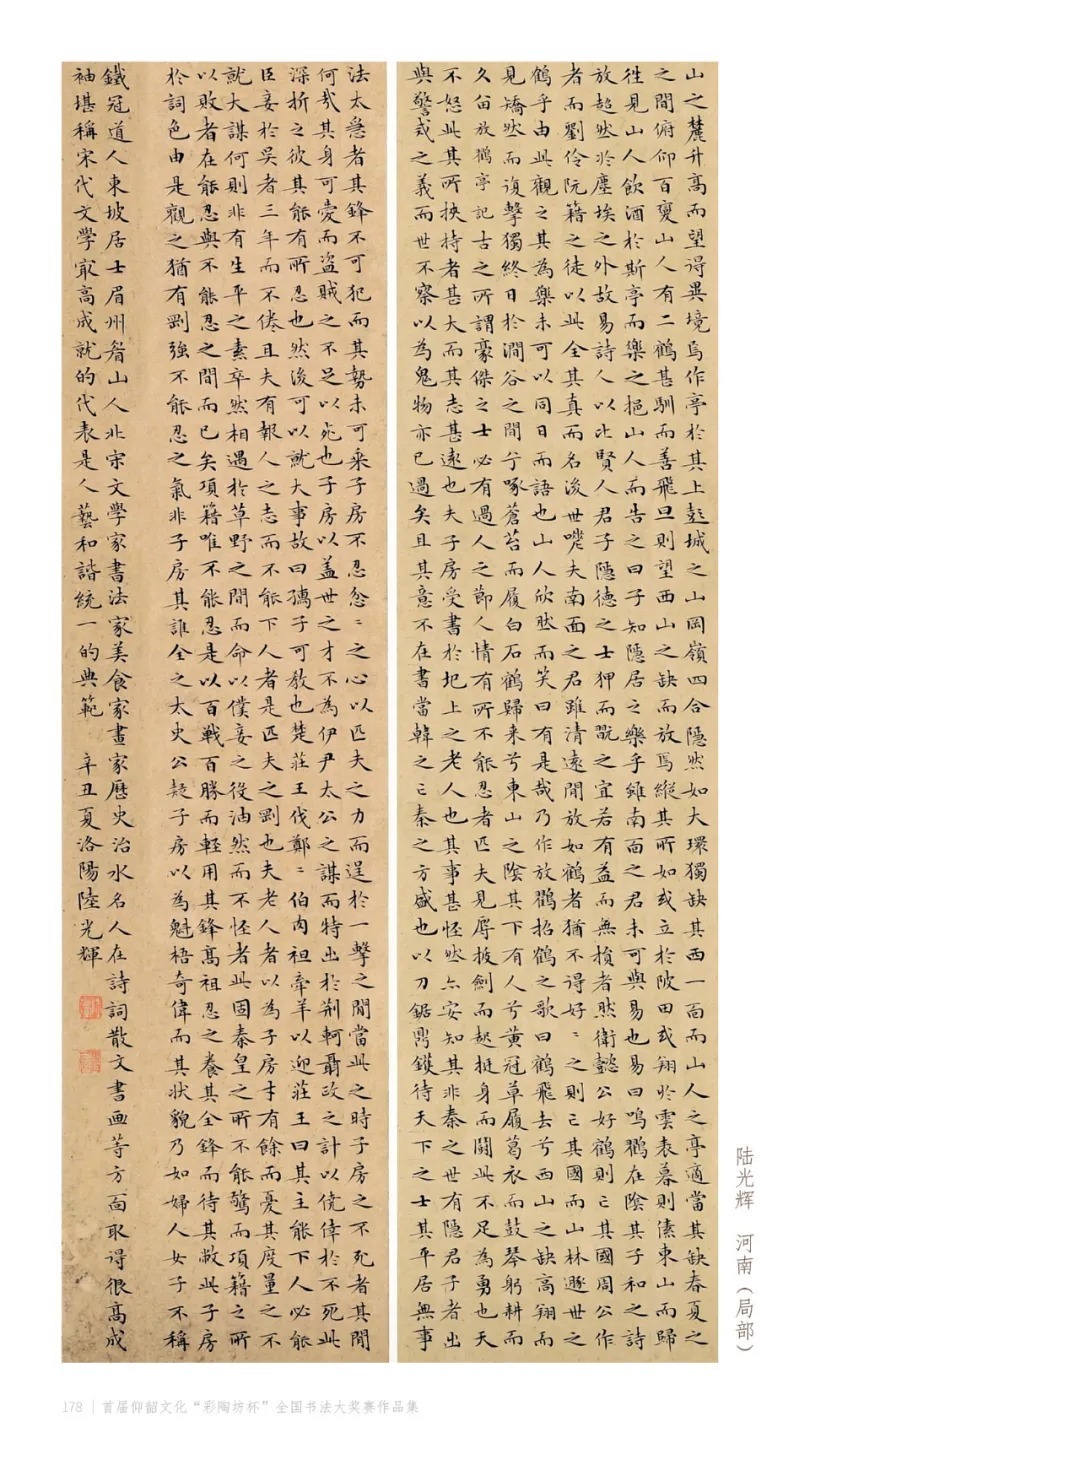 山之麓升高而望得異境焉作亭於其上彭城之山岡嶺四合隱然如大環獨缺其西一面而山人之亭適當其缺春夏之
之間俯仰百變山人有二鶴甚馴而善飛旦則望西山之缺而放焉縱其所如或立於陂田或翔於雲表暮則傃東山而歸
徃見山人飲酒於斯亭而樂之挹山人而告之曰子知隱居之樂乎雖南面之君未可與易也易曰鳴鶴在陰其子和之詩
放超然於塵埃之外故易詩人以比賢人君子隱德之士狎而翫之宜若有益而無損者然衛懿公好鶴則亡其國周公作
者而劉伶阮籍之徒以此全其真而名後世嗟夫南面之君雖清遠閒放如鶴者猶不得好〻之則亡其國而山林遯世之
鶴乎由此觀之其為樂未可以同日而語也山人欣然而笑曰有是哉乃作放鶴招鶴之歌曰鶴飛去兮西山之缺高翔而
見矯然而復擊獨終日於澗谷之間兮啄蒼苔而履白石鶴歸来兮東山之陰其下有人兮黄冠草履葛衣而鼓琴躬耕而
久留放鶴亭記古之所謂豪傑之士必有過人之節人情有所不能忍者匹夫見辱拔劍而起挺身而鬪此不足為勇也天
不怒此其所挾持者甚大而其志甚遠也夫子房受書於圯上之老人也其事甚怪然亦安知其非秦之世有隱君子者出
與警戒之義而世不察以為鬼物亦已過矣且其意不在書當韓之亡秦之方盛也以刀鋸鼎鑊待天下之士其平居無事
法太急者其鋒不可犯而其勢未可乘子房不忍忿〻之心以匹夫之力而逞於一擊之間當此之時子房之不死者其間
何哉其身可愛而盜賊之不足以死也子房以盖世之才不為伊尹太公之謀而特出於荆軻聶政之計以僥倖於不死此
深折之彼其能有所忍也然後可以就大事故曰孺子可教也楚莊王伐鄭〻伯肉袒牽羊以迎莊王曰其主能下人必能
臣妾於吳者三年而不倦且夫有報人之志而不能下人者是匹夫之剛也夫老人者以為子房才有餘而憂其度量之不
就大謀何則非有生平之素卒然相遇於草野之間而命以僕妾之役油然而不怪者此固秦皇之所不能驚而項籍之所
以敗者在能忍與不能忍之間而已矣項籍唯不能忍是以百戰百勝而輕用其鋒高祖忍之養其全鋒而待其敝此子房
於詞色由是觀之猶有剛強不能忍之氣非子房其誰全之太史公疑子房以為魁梧奇偉而其狀貌乃如婦人女子不稱
鐵冠道人東坡居士眉州眉山人北宋文學家書法家美食家畫家歷史治水名人在詩詞散文書画等方面取得很高成
袖堪稱宋代文學最高成就的代表是人藝和諧統一的典範 辛丑夏洛陽陸光輝
陆光辉 河南（局部）
178 | 首届仰韶文化“彩陶坊杯”全国书法大奖赛作品集